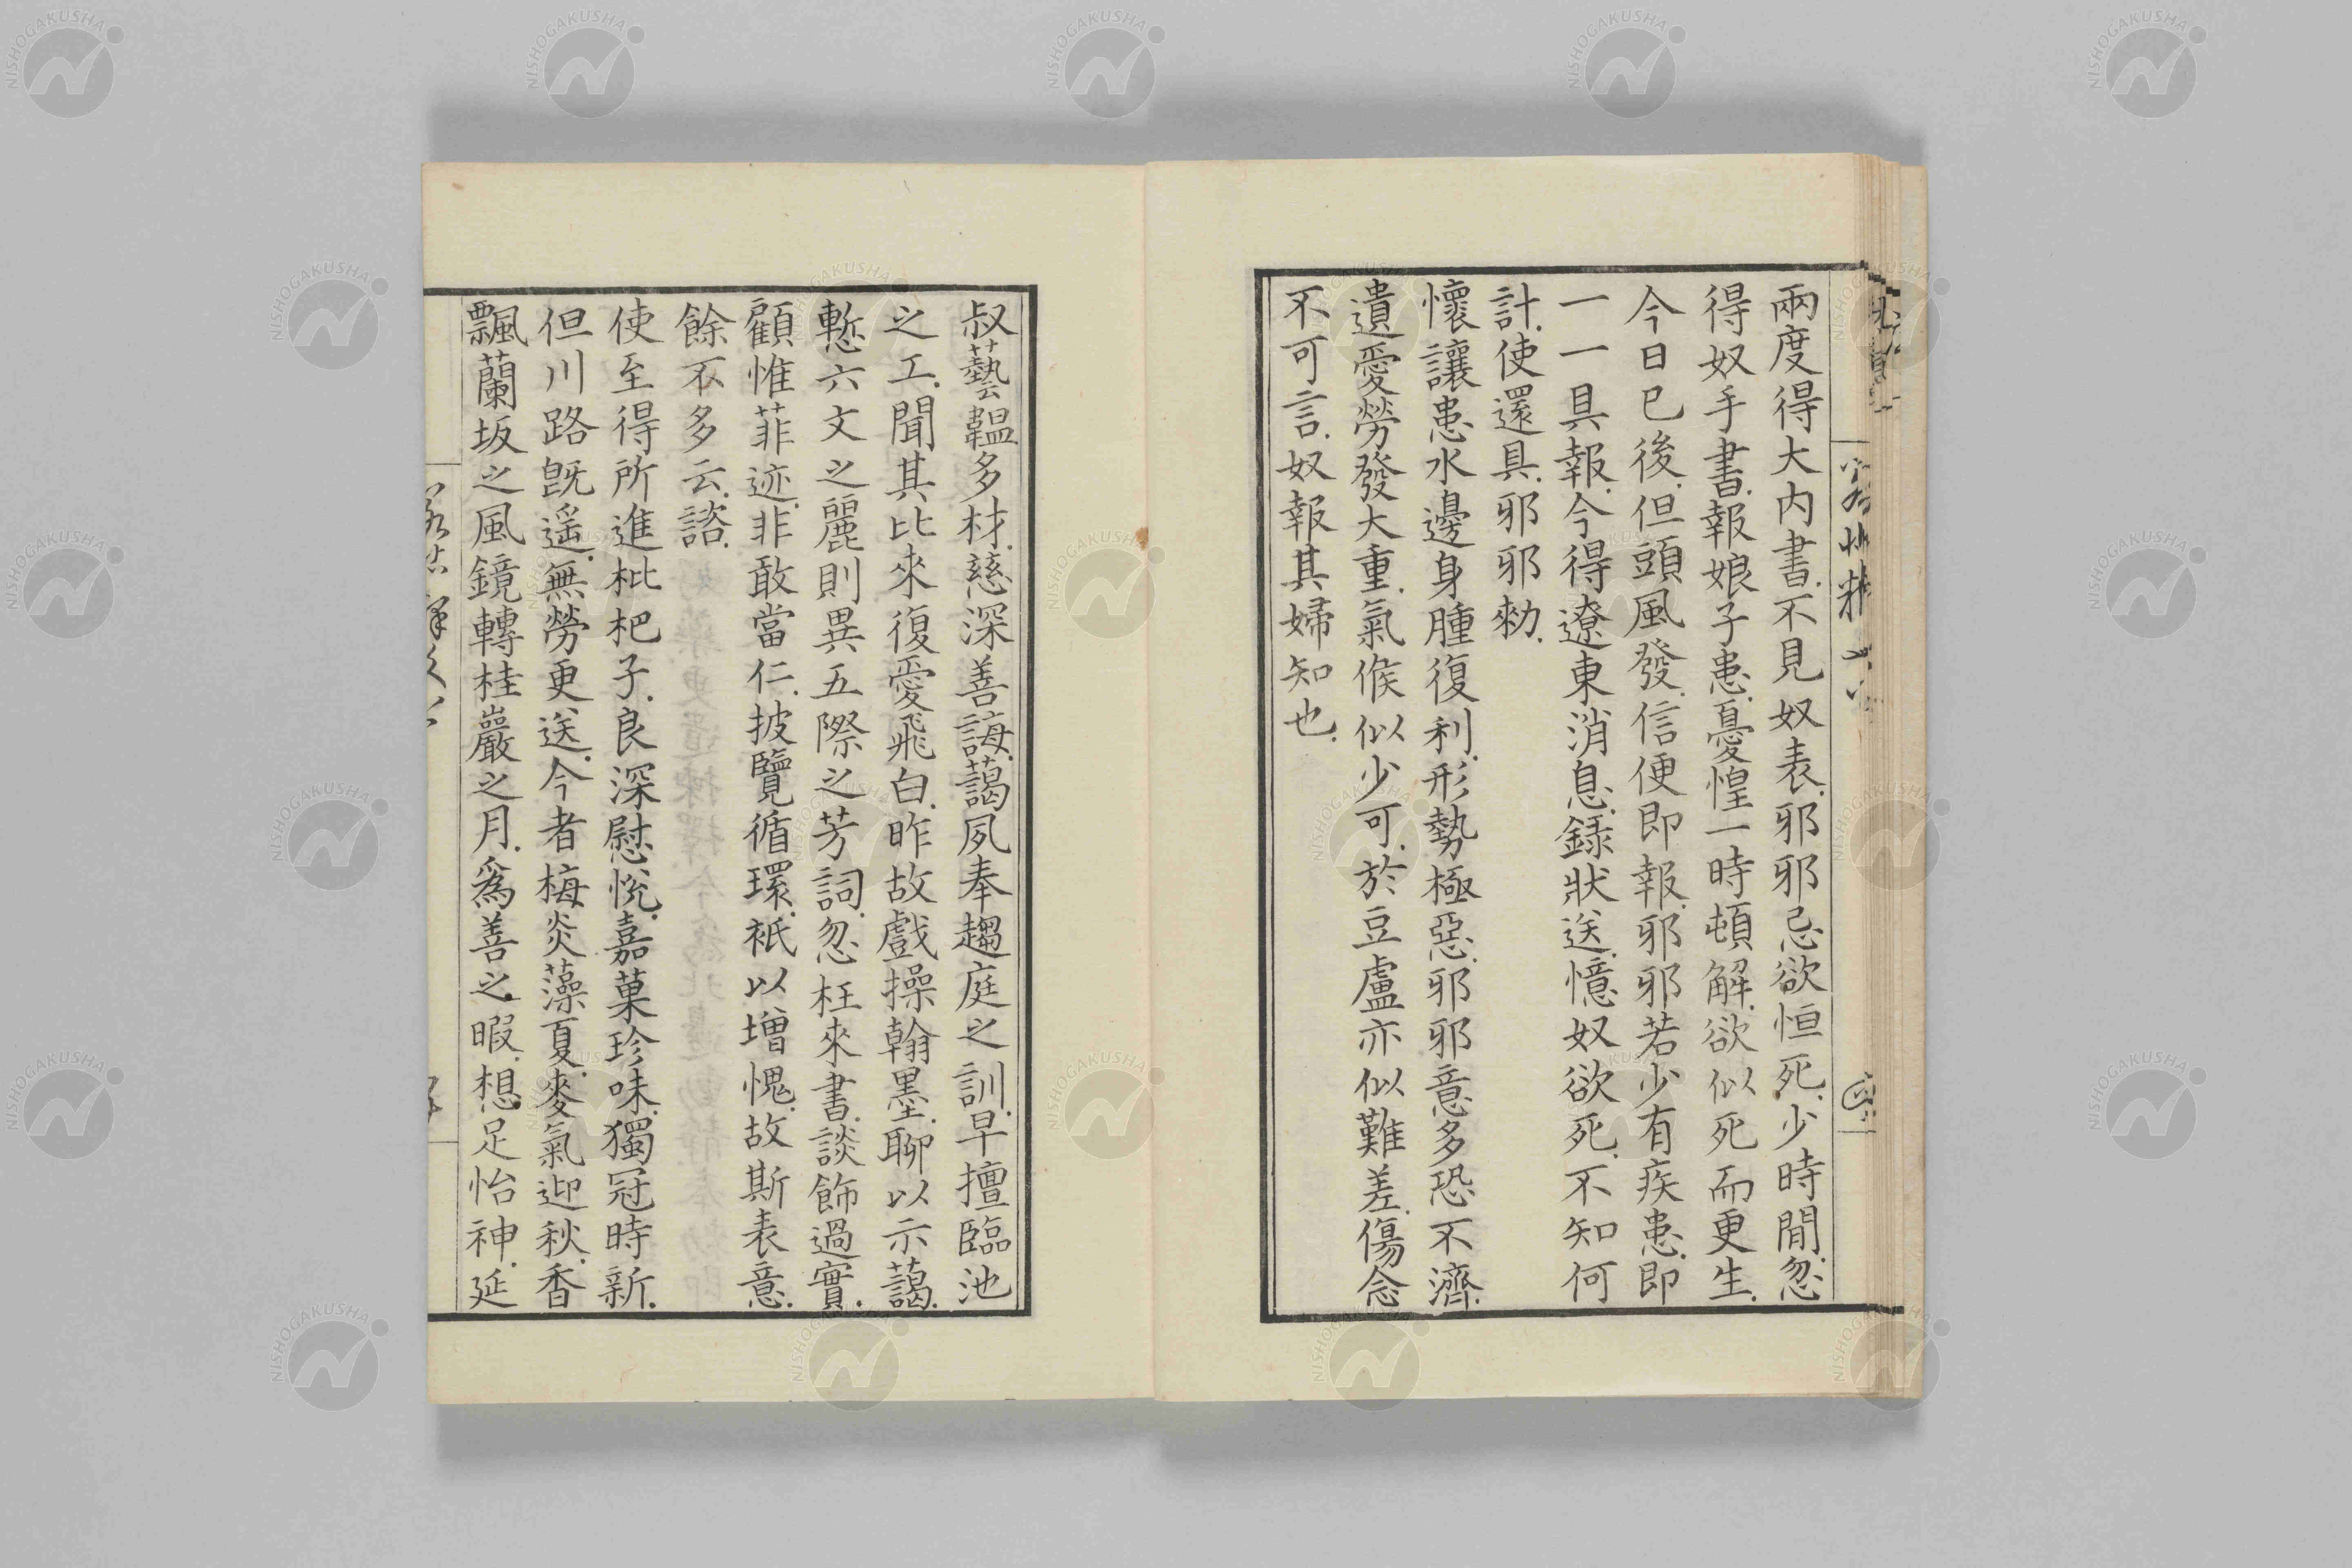 兩度得大内書.不見奴表.邪邪忌欲恒死.少時間.忽
得奴手書.報娘子患.憂惶一時頓解.欲似死而更生.
今日已後.但頭風發.信便即報.邪邪若少有疾患.即
一一具報.今得遼東消息.録狀送.憶奴欲死.不知何
計.使還具.邪邪勑.
懷讓患水邊身腫復利.形勢極惡.邪邪意多恐不濟.
遺愛勞發大重.氣候似少可.於豆盧亦似難差.傷念
不可言.奴報其婦知也.
叔藝韞多材.慈深善誨.藹夙奉趨庭之訓.早擅臨池
之工.聞其比來復愛飛白.昨故戲操翰墨.聊以示藹.
慙六文之麗則異五際之芳詞.忽枉來書.談飾過實.
顧惟菲迹.非敢當仁.披覽循環.祇以增愧.故斯表意.
餘不多云.諮.
使至得所進枇杷子.良深慰悅.嘉菓珍味.獨冠時新.
但川路既遥.無勞更送.今者梅炎藻夏.麥氣迎秋.香
飄蘭坂之風.鏡轉桂巖之月.爲善之暇.想足怡神.延
NISHOGAKUSHA